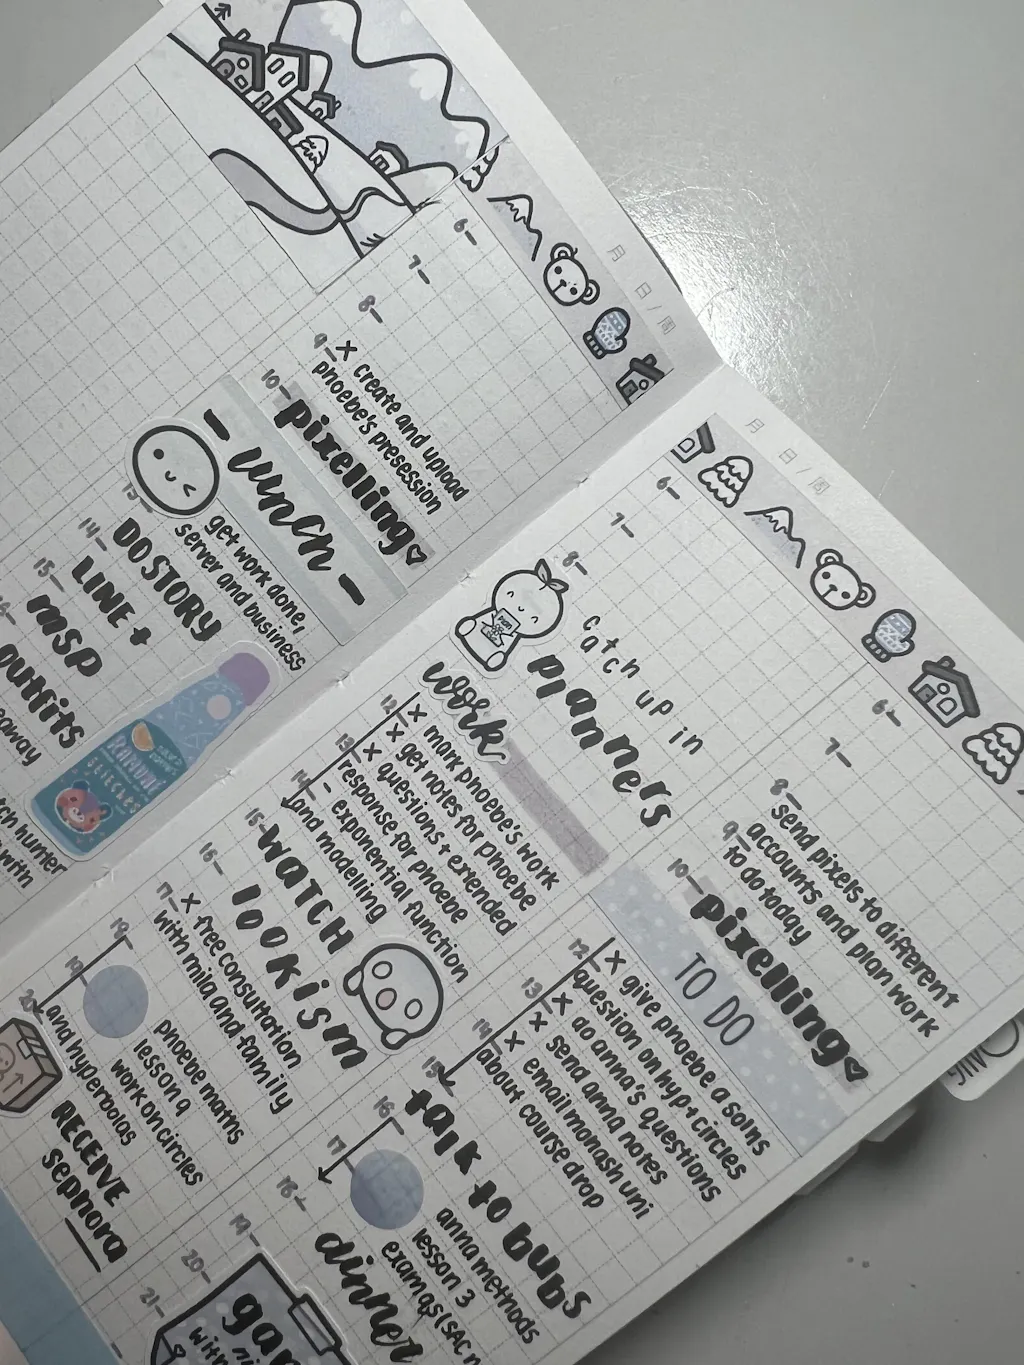 月
日/周
6
7
8
9
x create and upload
phoebe's presession
10
pixelling
lunch
13
get work done,
server and business
14
DO STORY
LINE +
15
msp
outfits
RAMUNE
月
日/周
6
7
8
catch up in
planners
plan
work
12
x mark phoebe's work
x get notes for phoebe
13
x questions + extended
response for phoebe
14
- exponential function
and modelling
15
WATCH
lookism
16
17
x free consultation
with mila and family
19
phoebe maths
lesson 9
work on circles
20
and hyperbolas
RECEIVE
sephora
6
7
8
send pixels to different
9
accounts and plan work
to do today
10
pixelling
TO DO
12
x give phoebe a solns
question on hyp + circles
13
x do anna's questions
x send anna notes
14
x email monash uni
about course drop
15
talk to bubs
16
17
anna methods
lesson 3
exam qs (SAC
18
dinner
19
20
21